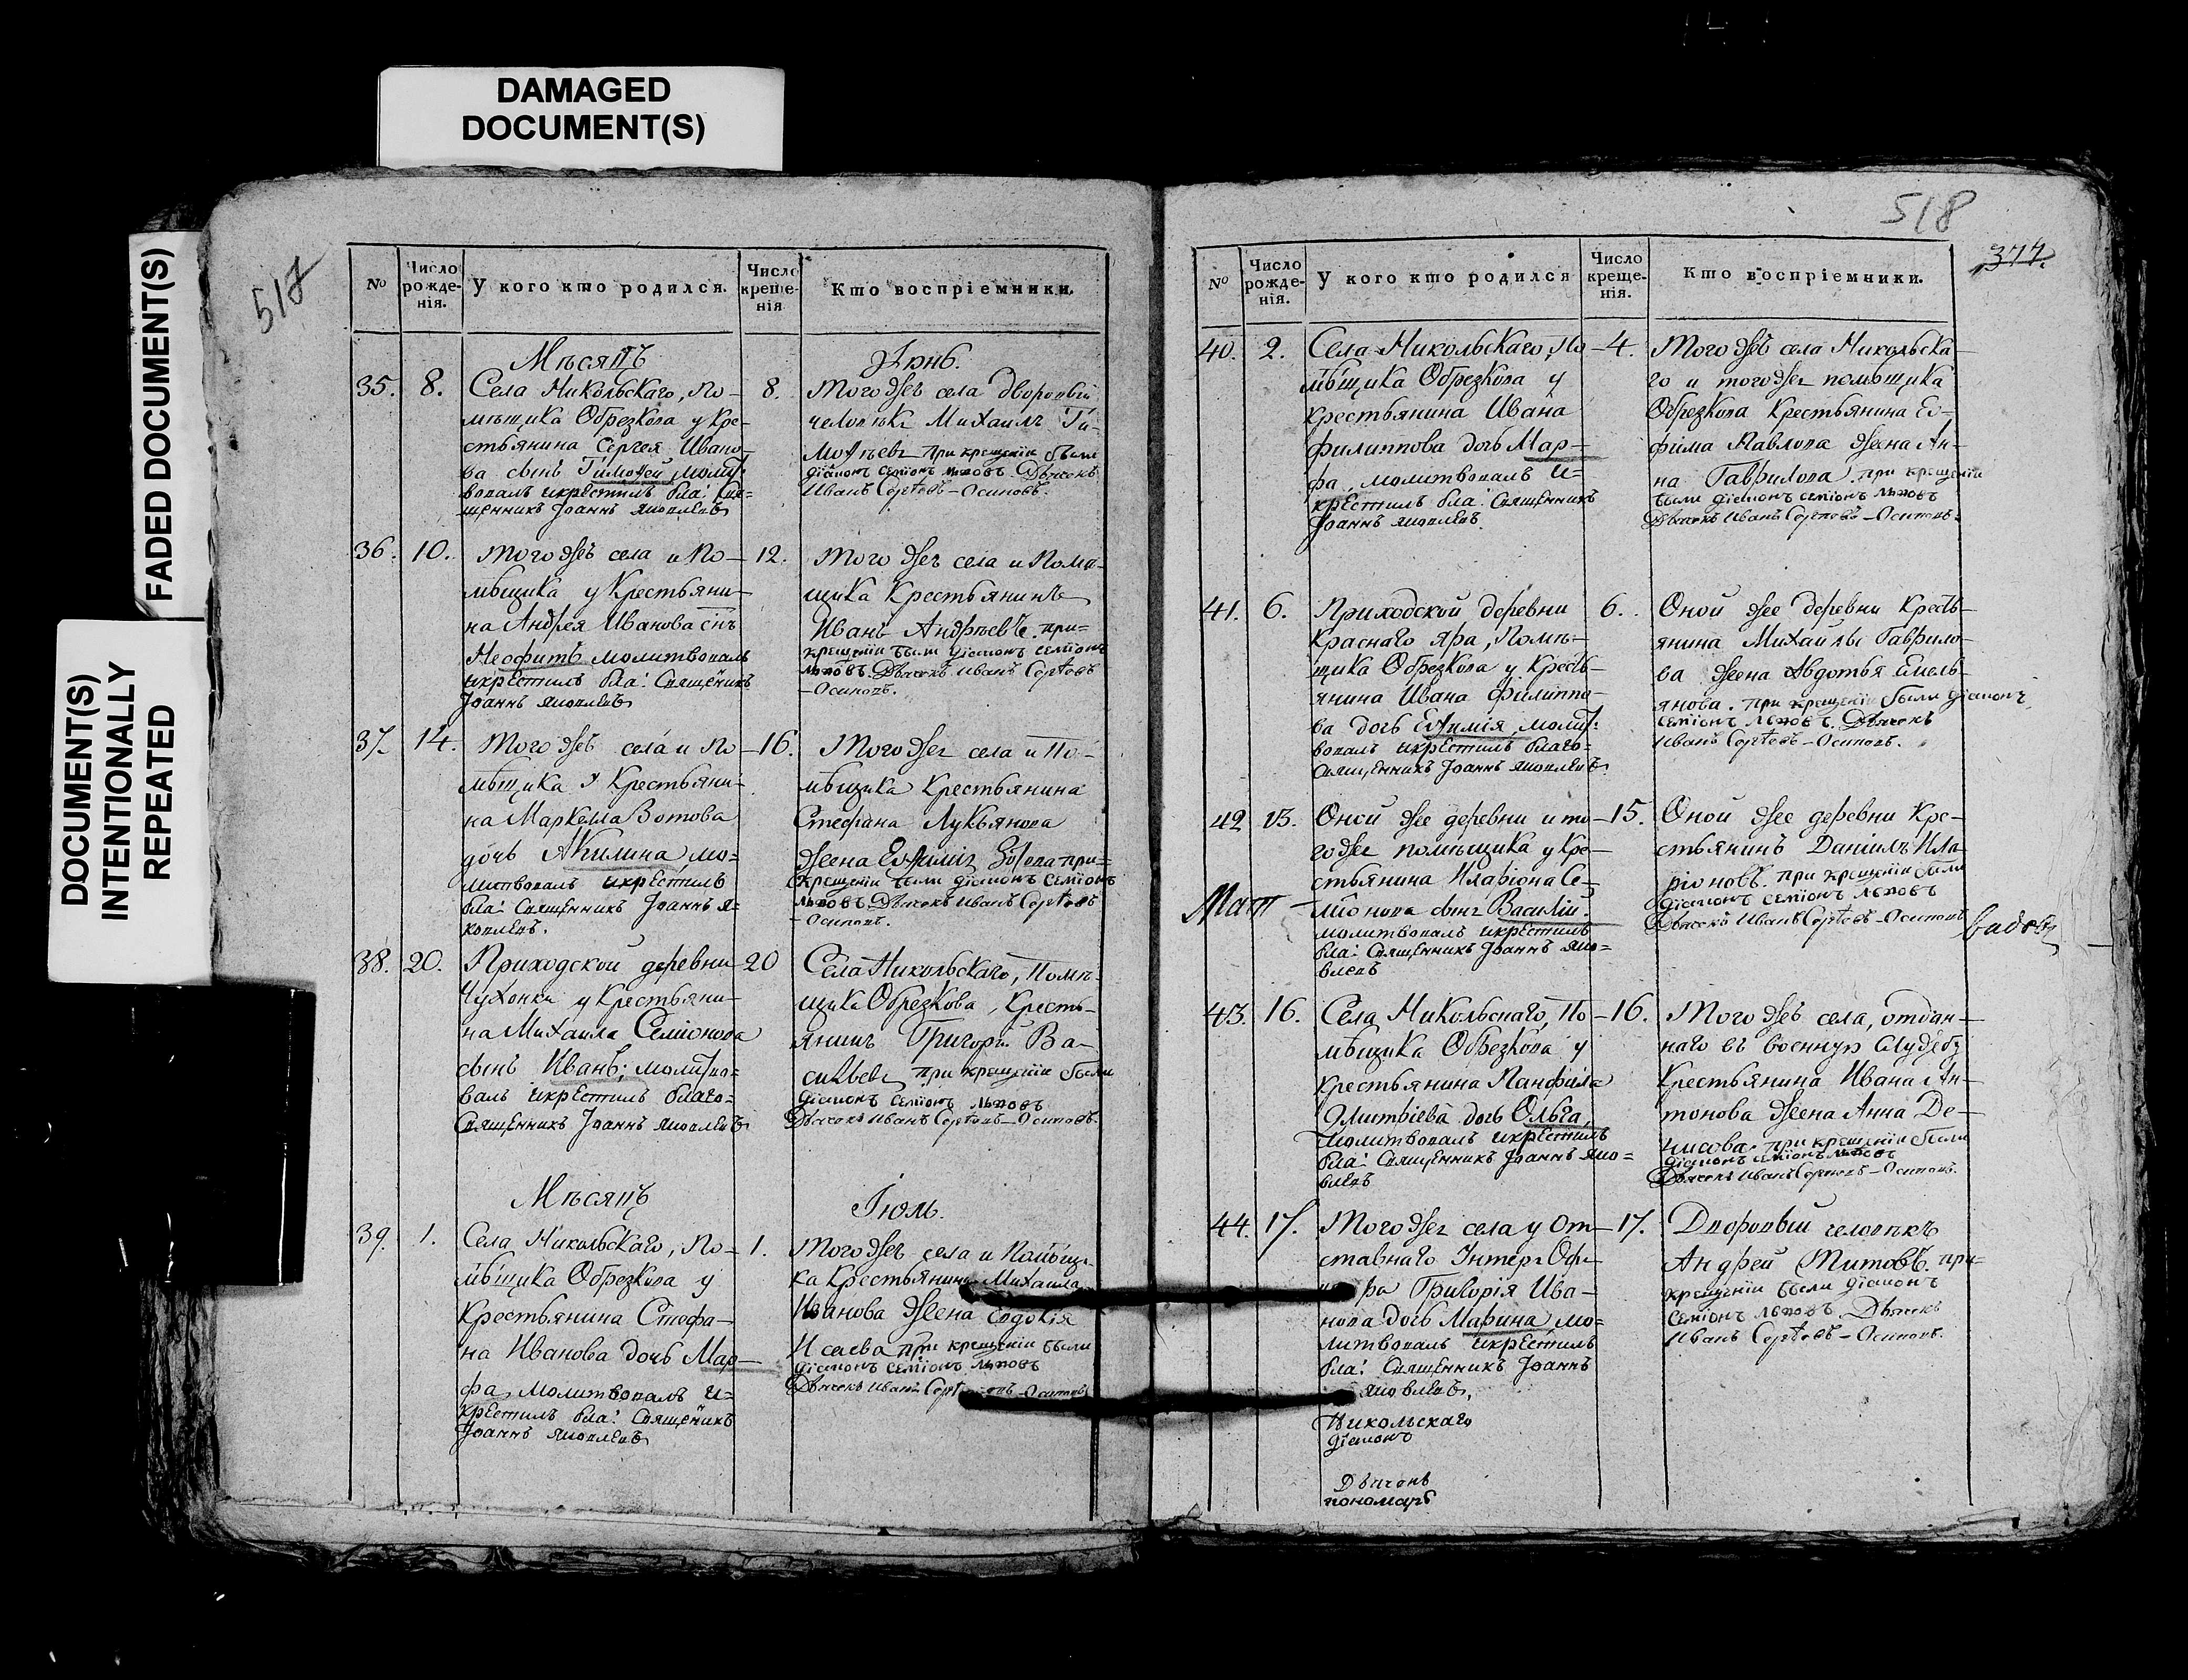 DAMAGED
DOCUMENT(S)
FADED DOCUMENT(S)
DOCUMENT(S)
INTENTIONALLY
REPEATED
517
№
Число рожденія.
У кого кто родился.
Число крещенія
Кто воспріемники.
Мѣсяцъ
Іюнь.
35.
8.
Села Никольскаго, По-
мѣщика Обрезкова у кре-
стьянина Сергея Ивано-
ва сынъ Тимоѳей, молит-
вовалъ икрестилъ бла: Свя=
щенникъ Іоаннъ Яковлевъ
8.
Тогожъ села дворовый
человѣкъ Михаилъ Ти-
моѳѣевъ при крещеніи были
діаконъ Семіонъ Львовъ. Дьячекъ
Иванъ Сергѣевъ-Осиповъ.
36.
10.
Тогожъ села и По-
мѣщика у Крестьяни-
на Андрея Иванова снъ
Неофитъ молитвовалъ
икрестилъ бла: Священникъ
Іоаннъ Яковлевъ
12.
Тогожъ села и Помѣ-
щика Крестьянинъ
Иванъ Андрѣевъ. при=
крещеніи были діаконъ Семіонъ
Львовъ. Дьячекъ Иванъ Сергѣевъ
-Осиповъ.
37.
14.
Тогожъ села и По-
мѣщика у Крестьяни-
на Маркелла Зотова
дочь Акилина мо=
литвовалъ икрестилъ
бла: Священникъ Іоаннъ Я=
ковлевъ.
16.
Тогожъ села и По-
мѣщика Крестьянина
Стефана Лукьянова
жена Евѳимія Зотова при=
крещеніи были діаконъ Семіонъ
Львовъ. Дьячекъ Иванъ Сергѣевъ
-Осиповъ.
38.
20.
Приходской деревни
Чухонки у Крестьяни-
на Михаила Семіонова
сынъ Иванъ; молитво=
валъ икрестилъ благо=
Священникъ Іоаннъ Яковлевъ
20
Села Никольскаго, Помѣ-
щика Обрезкова, Кресть-
янинъ Григорій Ва-
сильевъ при крещеніи были
діаконъ Семіонъ Львовъ
Дьячекъ Иванъ Сергѣевъ-Осиповъ.
Мѣсяцъ
Іюль.
39.
1.
Села Никольскаго, По-
мѣщика Обрезкова у
Крестьянина Стефа-
на Иванова дочь Мар-
фа, молитвовалъ и=
крестилъ бла: Священникъ
Іоаннъ Яковлевъ
1.
Тогожъ села и Помѣщи-
ка Крестьянина Михаила
Иванова жена Евдокія
Исаева при крещеніи были
діаконъ Семіонъ Львовъ
Дьячекъ Иванъ Сергѣевъ-Осиповъ
518
377.
№
Число рожденія.
У кого кто родился
Число крещенія.
Кто воспріемники.
40.
2.
Села Никольскаго, По-
мѣщика Обрезкова у
крестьянина Ивана
Филиппова дочь Мар-
фа, молитвовалъ и=
крестилъ бла: Священникъ
Іоаннъ Яковлевъ.
4.
Тогожъ села Никольска-
го и тогожъ помѣщика
Обрезкова Крестьянина Ев-
фима Павлова жена Ан-
на Гаврилова. при крещеніи
были діаконъ Семіонъ Львовъ
Дьячекъ Иванъ Сергѣевъ-Осиповъ.
41.
6.
Приходской деревни
Краснаго яра, Помѣ-
щика Обрезкова у Кресть-
янина Ивана Филиппо-
ва дочь Евѳимія, молит:
вовалъ икрестилъ благо=
Священникъ Іоаннъ Яковлевъ.
6.
Оной же деревни Кресть-
янина Михаилы Гаврило-
ва жена Авдотья Емель-
янова. при крещеніи были діаконъ
Семіонъ Львовъ. Дьячекъ
Иванъ Сергѣевъ-Осиповъ.
42
13.
Оной же деревни и то-
гожъ помѣщика у Кре-
стьянина Иларіона Се-
міонова сынъ Василій.
молитвовалъ икрестилъ
бла: Священникъ Іоаннъ Яко=
влевъ
15.
Оной же деревни Кре-
стьянинъ Даніилъ Ила-
ріоновъ. при крещеніи были
діаконъ Семіонъ Львовъ
Дьячекъ Иванъ Сергѣевъ-Осиповъ
43.
16.
Села Никольскаго, По-
мѣщика Обрезкова у
Крестьянина Панфила
Дмитріева дочь Ольга,
молитвовалъ икрестилъ
бла: Священникъ Іоаннъ Яко=
влевъ
16.
Тогожъ села, отдан-
наго въ военную службу
Крестьянина Ивана Ан-
тонова жена Анна Де-
нисова. при крещеніи были
діаконъ Семіонъ Львовъ
Дьячекъ Иванъ Сергѣевъ-Осиповъ.
44.
17.
Тогожъ села у От-
ставнаго Унтеръ Офи-
цера Григорія Ива-
нова дочь Марина, мо=
литвовалъ икрестилъ
бла: Священникъ Іоаннъ
Яковлевъ.
17.
Дворовый человѣкъ
Андрей Титовъ. при=
крещеніи были діаконъ
Семіонъ Львовъ. Дьячекъ
Иванъ Сергѣевъ-Осиповъ.
Никольскаго
діаконъ
Дьячекъ
пономарь